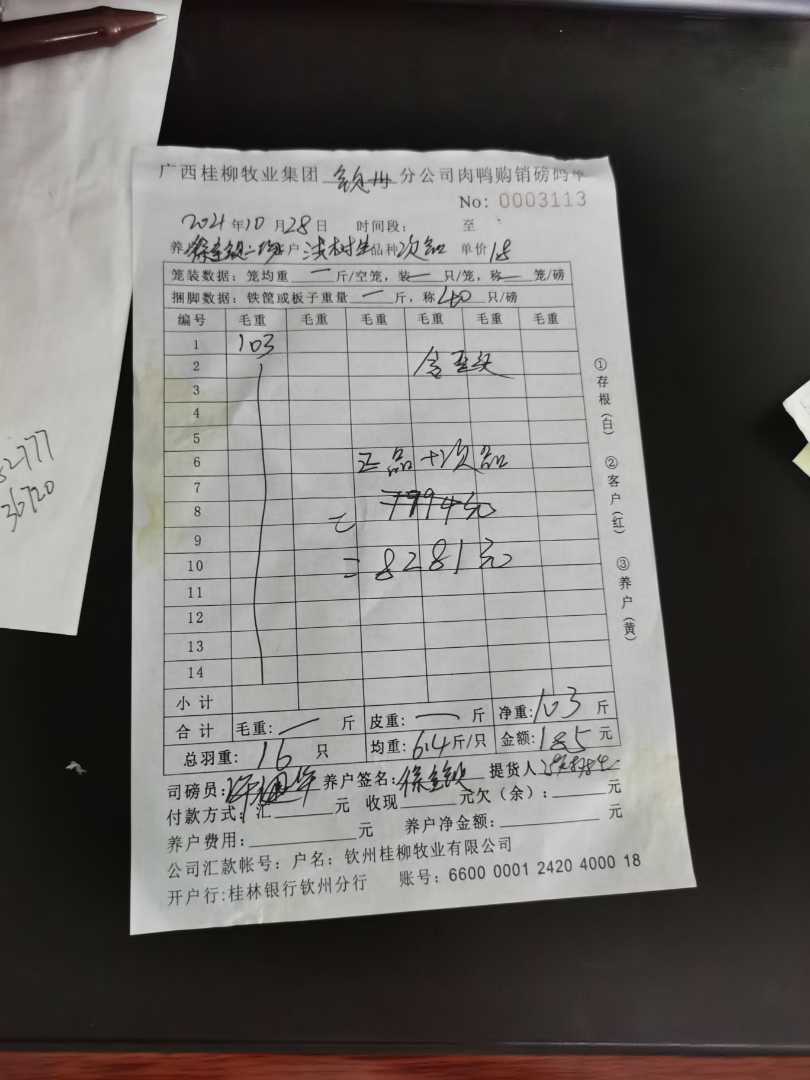 广西桂柳牧业集团 钦州 分公司肉鸭购销磅码单
No: 0003113
2021年10月28日 时间段: 至
养 户 品种 次品 单价 1.8
笼装数据: 笼均重 一 斤/空笼, 装 一 只/笼, 称 一 笼/磅
捆脚数据: 铁筐或板子重量 一 斤, 称 40 只/磅
编号 毛重 毛重 毛重 毛重 毛重 毛重
1 103
2
3
4
5
6 正品+次品
7
8 = 7994元
9
10 = 8281元
11
12
13
14
小计
合计 毛重: 一 斤 皮重: 一 斤 净重: 103 斤
总羽重: 16 只 均重: 6.4 斤/只 金额: 185 元
司磅员: 养户签名: 提货人
付款方式: 汇 元 收现 元欠(余): 元
养户费用: 元 养户净金额: 元
公司汇款帐号: 户名: 钦州桂柳牧业有限公司
开户行:桂林银行钦州分行 账号: 6600 0001 2420 4000 18
①存根(白) ②客户(红) ③养户(黄)
2777
36720